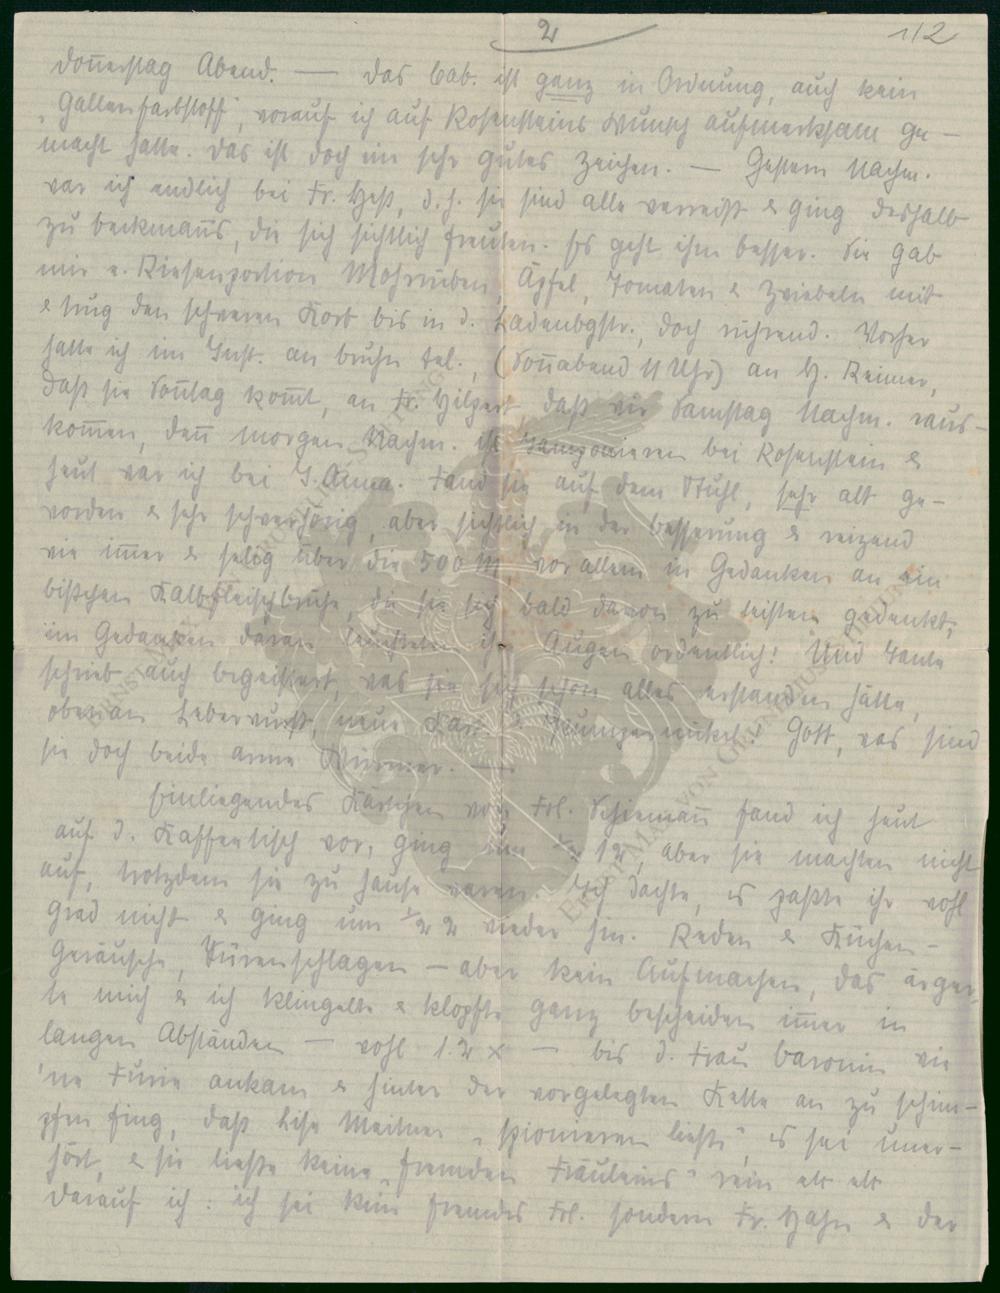 2
112
Donnerstag Abend. — Das Lab. ist ganz in Ordnung, auch kein
"Gallenfarbstoff", worauf ich auf Rosensteins Wunsch aufmerksam ge-
macht hatte. Das ist doch ein sehr gutes Zeichen. — Gestern Nachm.
war ich endlich bei Fr. Heß, d. h. sie sind alle verreist & ging deshalb
zu Beckmann's, die sich sichtlich freuten. Es geht ihm besser. Sie gab
mir e. Riesenportion Mohrrüben, Äpfel, Tomaten & Zwiebeln mit
& trug den schweren Korb bis in d. Ladenbgstr., doch rührend. Vorher
hatte ich im Inst. an Bruhn tel., (Sonnabend 11 Uhr) an H. Reimer,
daß sie Sonntag kom̄t, an Fr. Hilpert daß wir Samstag Nachm. raus-
kom̄en, den̄ morgen Nachm. ist Tamponieren bei Rosenstein &
heut war ich bei T. Anna. Fand sie auf dem Stuhl, sehr alt ge-
worden & sehr schwerhörig, aber sichtlich in der Besserung & reizend
wie im̄er & selig über die 500 M, vor allem in Gedanken an ein
bißchen Kalbfleischbrühe, die sie sich bald davon zu leisten gedenkt,
im Gedanken daran leuchteten ihr Augen ordentlich! Und Tante
schrieb auch begeistert, was sie sich schon alles erstanden hätte,
obenan Leberwurst, neue & Pumpernickel. Gott, was sind
sie doch beide arme Würmer. —
Einliegendes Kärtchen von Frl. Schieman̄ fand ich heut
auf d. Kaffeetisch vor, ging um 1/2 12, aber sie machten nicht
auf, trotzdem sie zu Hause waren. Ich dachte, es paßte ihr wohl
grad nicht & ging um 1/2 2 wieder hin. Reden & Küchen-
geräusche, Türenschlagen — aber kein Aufmachen, das ärger-
te mich & ich klingelte & klopfte ganz bescheiden im̄er in
langen Abständen — wohl 12 x — bis d. Frau Baronin wie
'ne Furie ankam & hinter der vorgelegten Kette an zu schim-
pfen fing, daß Lise Meitner "spionieren ließe", es sei uner-
hört, & sie ließe keine "fremden Fräuleins" rein etc etc
Darauf ich: ich sei kein fremdes Frl. sondern Fr. Hahn & der